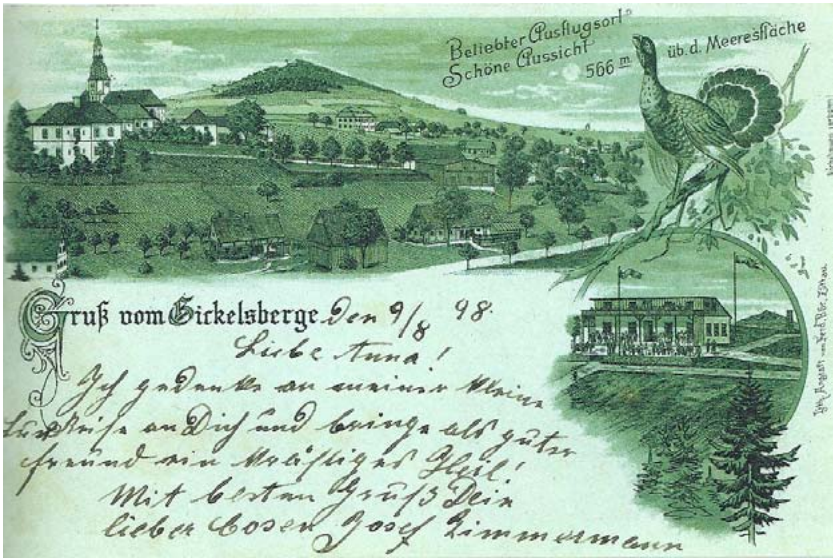 Beliebter Ausflugsort
Schöne Aussicht
566 m üb. d. Meeresfläche
Gruß vom Gickelsberge. Den 9/8 98.
Liebe Anna!
Ich gedenke an meiner kleine
an Dich und bringe als guter
freund ein kräftiges Heil!
Mit besten Gruß Dein
lieber Cosen Josef Zimmermann